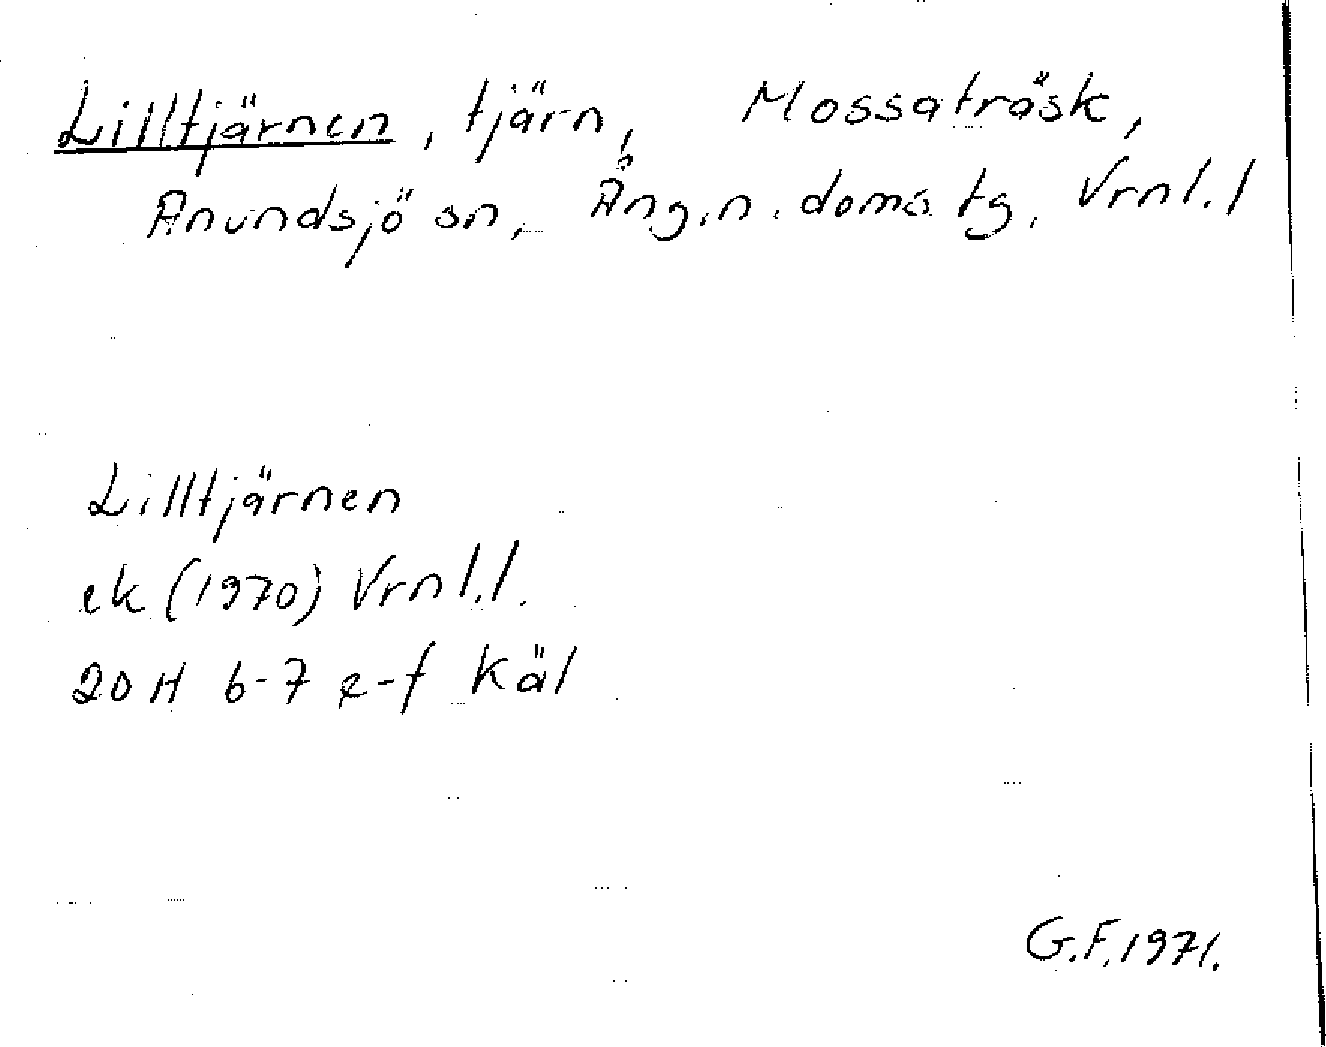 Lilltjärnen, tjärn, Mossaträsk,
Anundsjö sn, Ång.n. doms. tg, Vrnl.l
Lilltjärnen
ek (1970) Vrnl.l.
20 H 6-7 e-f Käl
G.F. 1971.